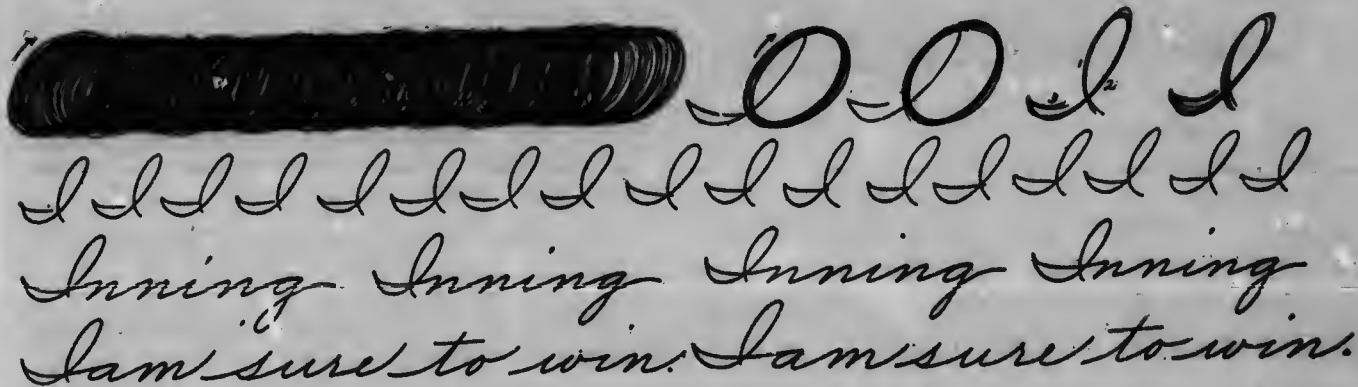 I I
I I I I I I I I I I I I I I I I I
Inning Inning Inning Inning
I am sure to win. I am sure to win.